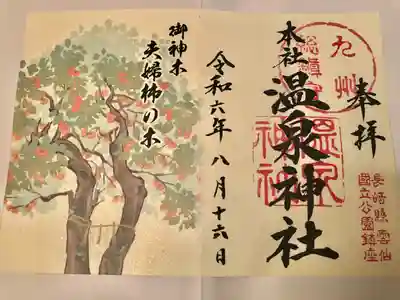 奉拝
長崎縣雲仙
國立公園鎮座
九州
総鎮
本社
温泉神社
温泉
神社
令和六年八月十六日
御神木
夫婦柿の木